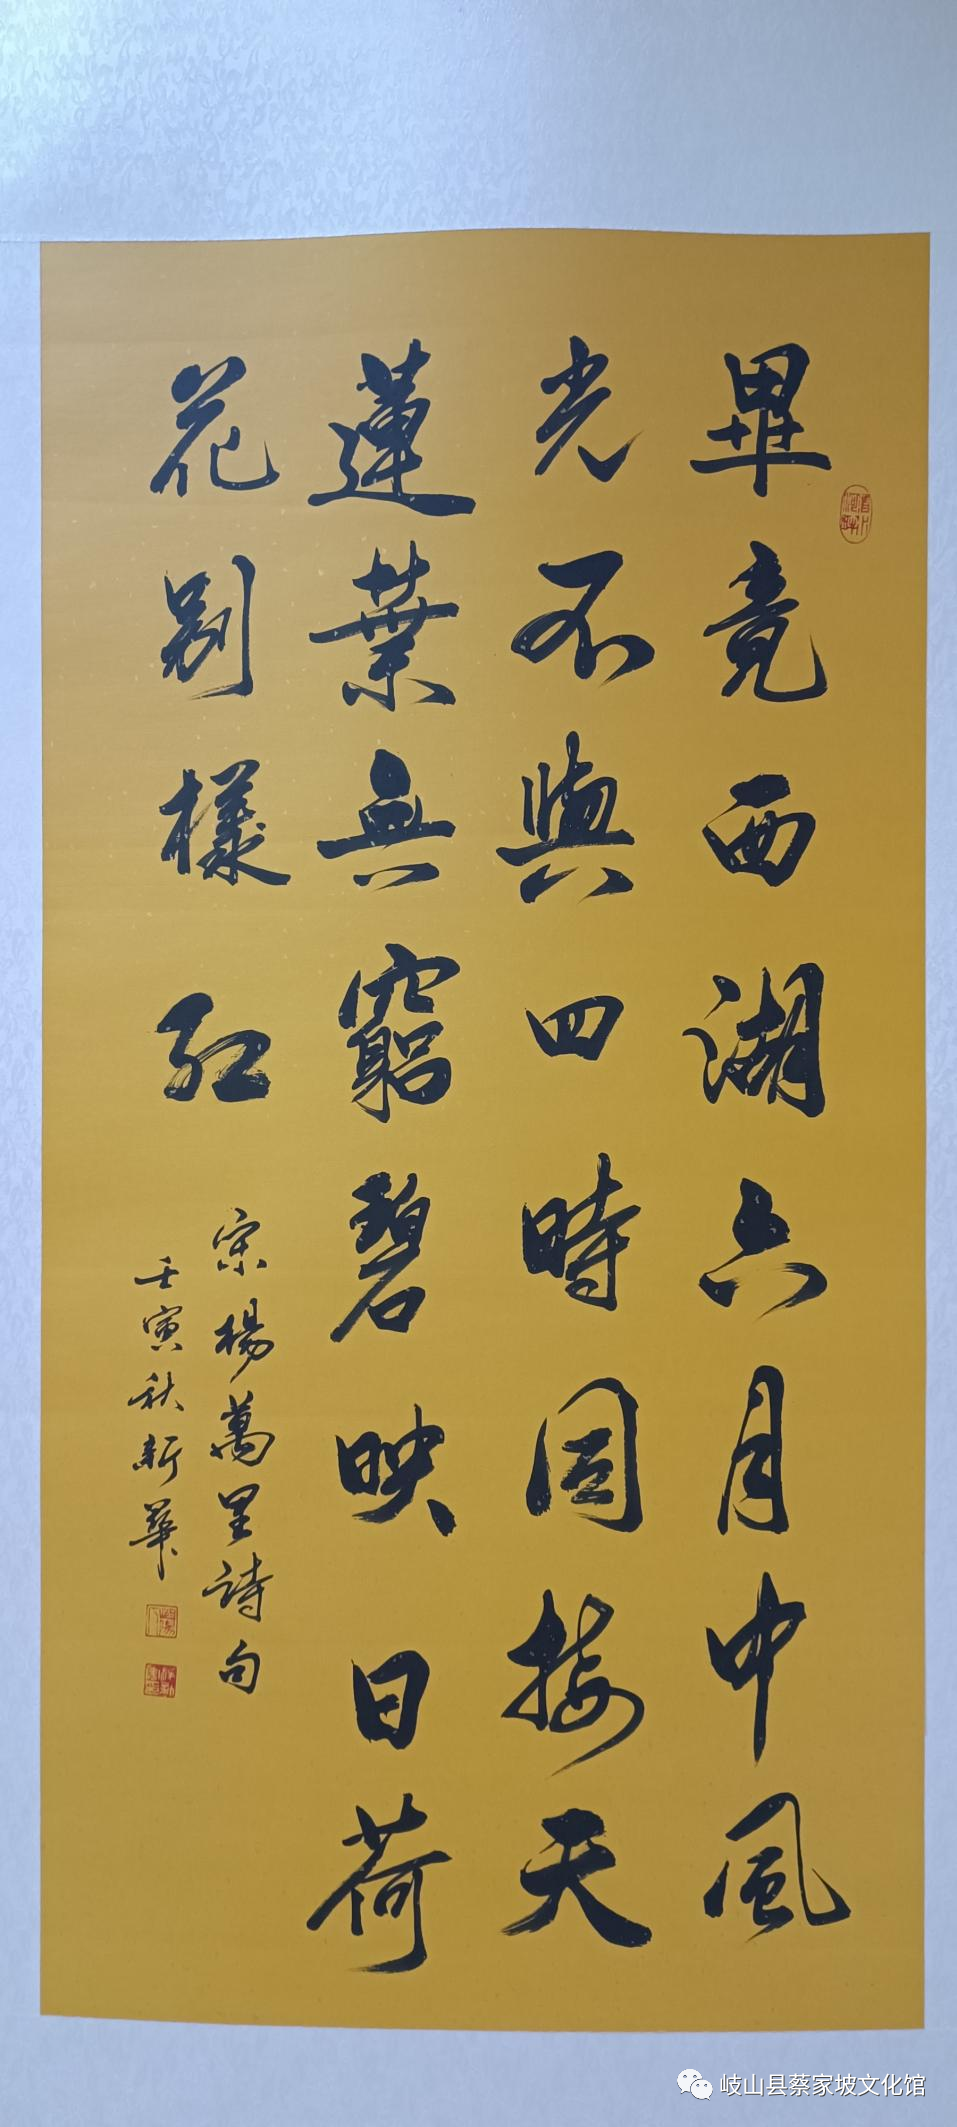 畢竟西湖六月中風
光不與四時同接天
蓮葉無窮碧映日荷
花别樣红
宋楊萬里詩句
壬寅秋新華
岐山县蔡家坡文化馆